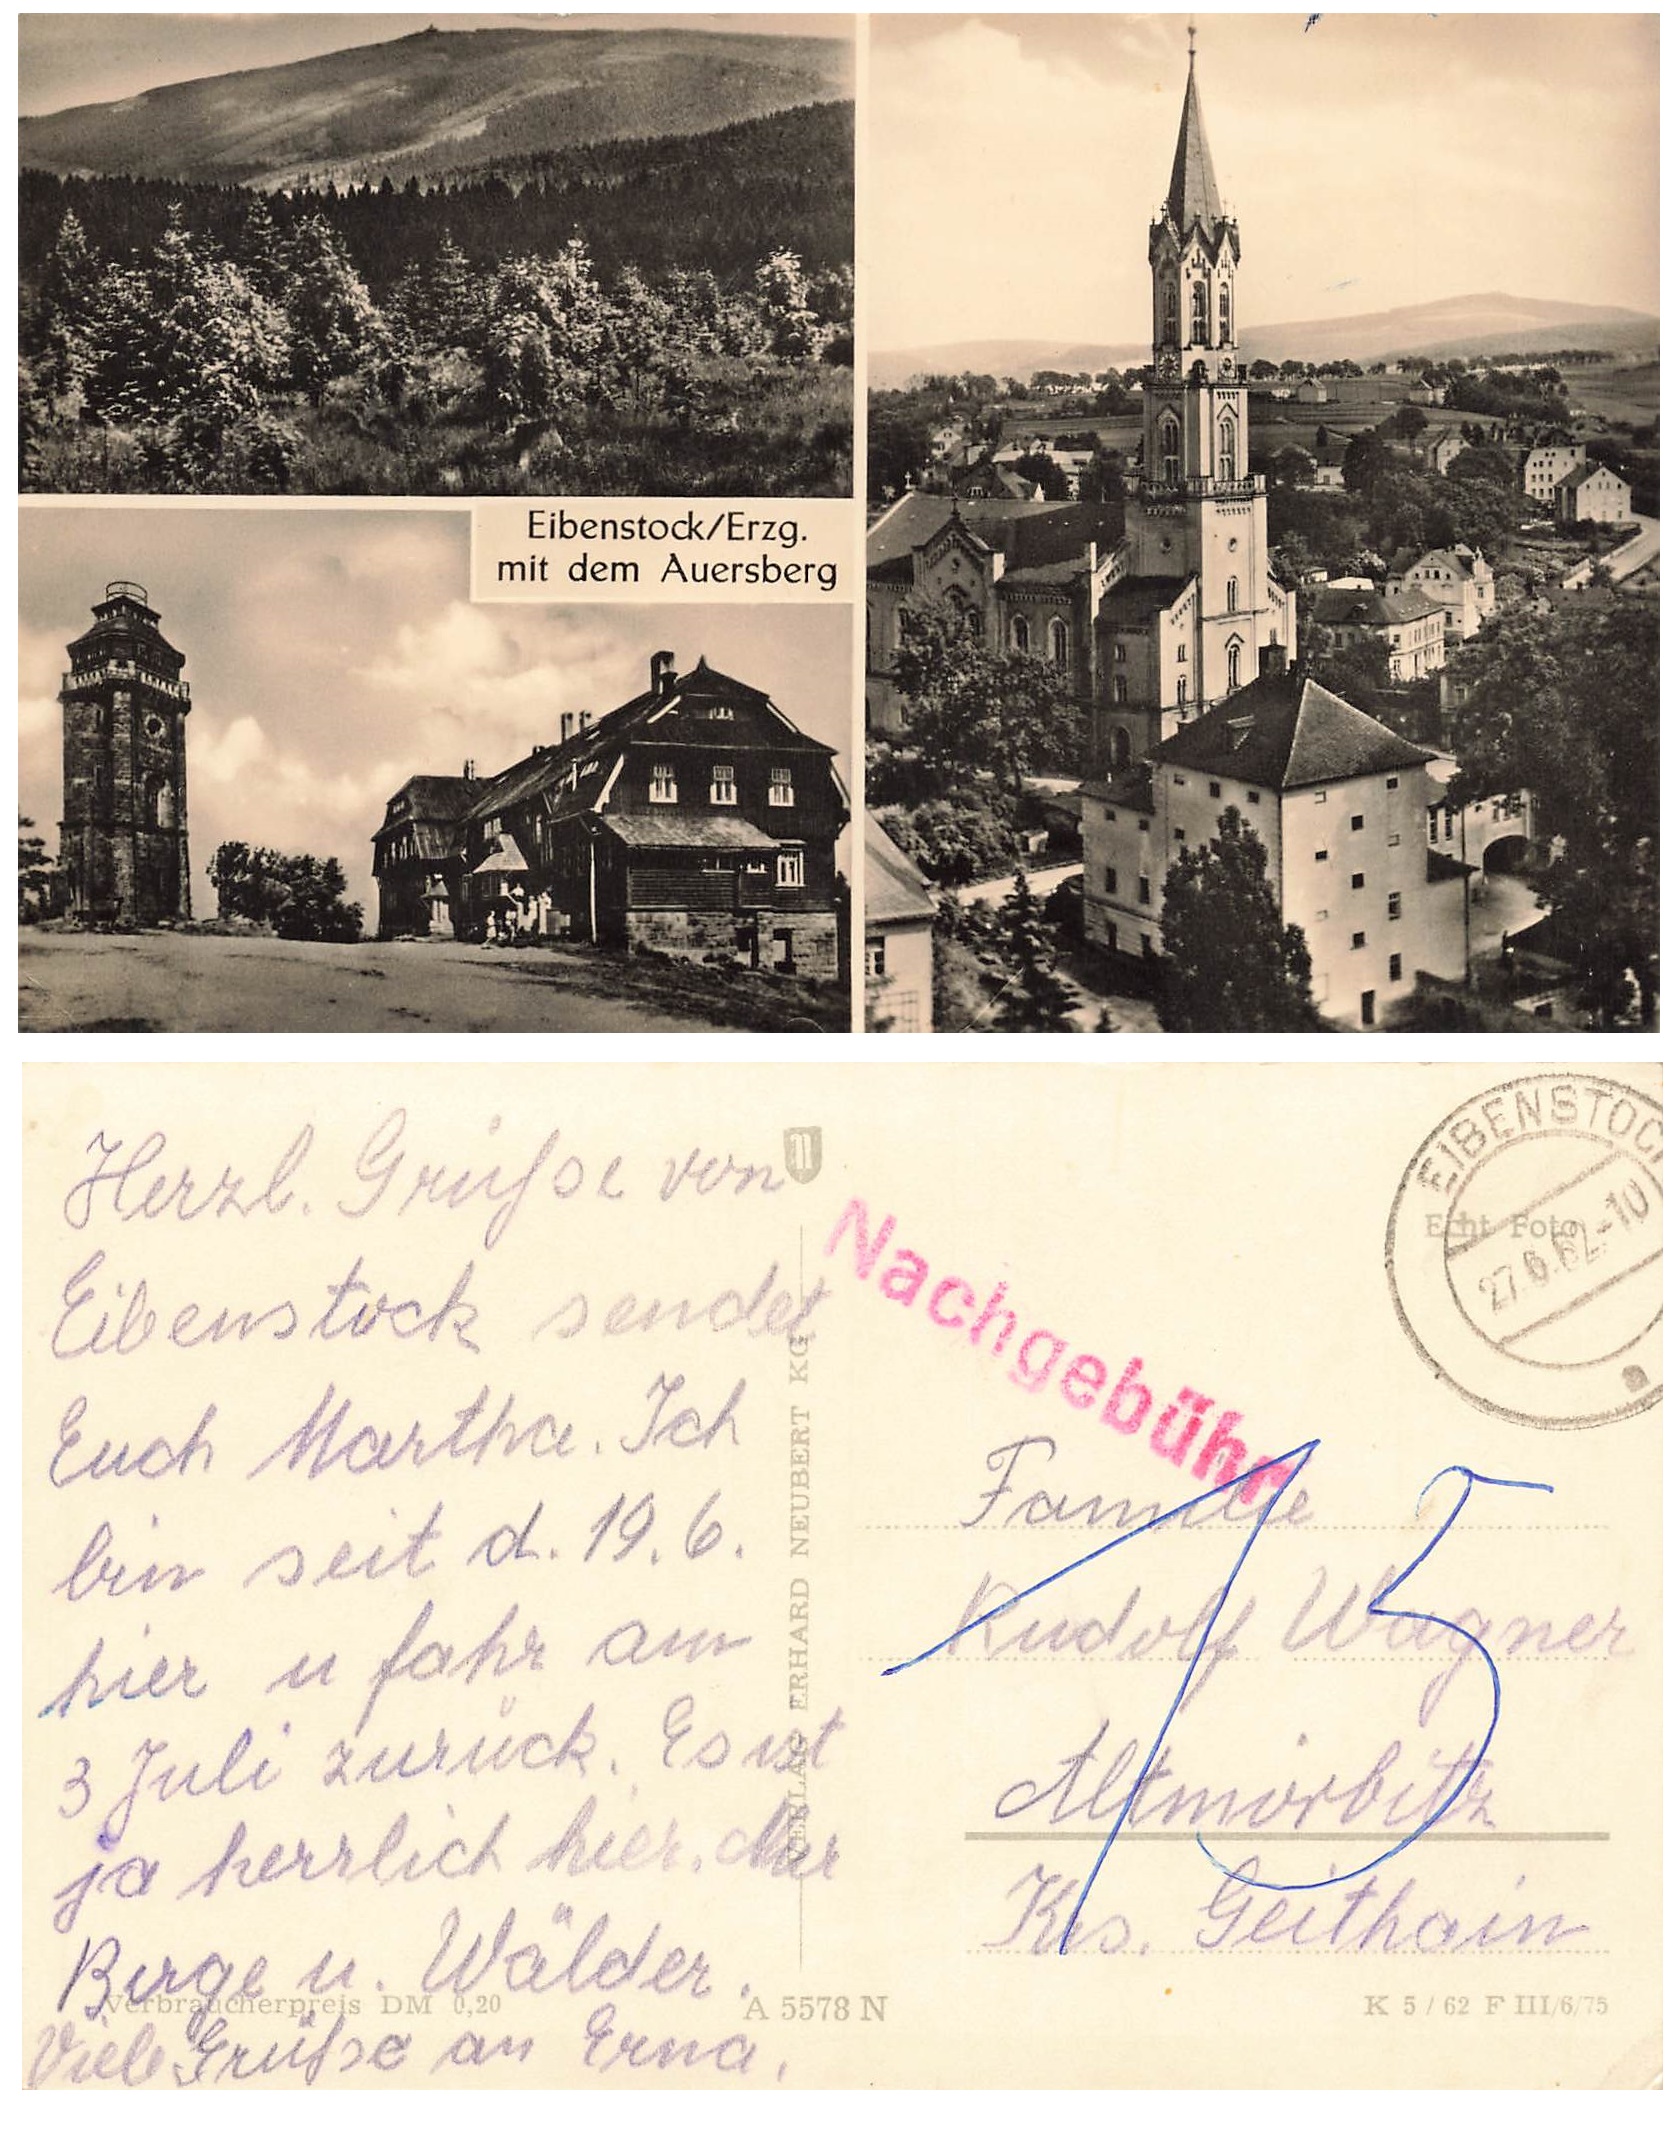 Eibenstock/Erzg.
mit dem Auersberg
Herzl. Grüße von
Eibenstock sendet
Euch Martha. Ich
bin seit d. 19. 6.
hier u fahr am
3 Juli zurück. Es ist
ja herrlich hier. Nur
Berge u. Wälder.
Viele Grüße an Erna.
VERLAG ERHARD NEUBERT KG
Verbraucherpreis DM 0,20
A 5578 N
Nachgebühr
15
EIBENSTOCK
27.6.62.-10
a
Echt Foto
Familie
Rudolf Wagner
Altmörbitz
Krs. Geithain
K 5 / 62 F III/6/75